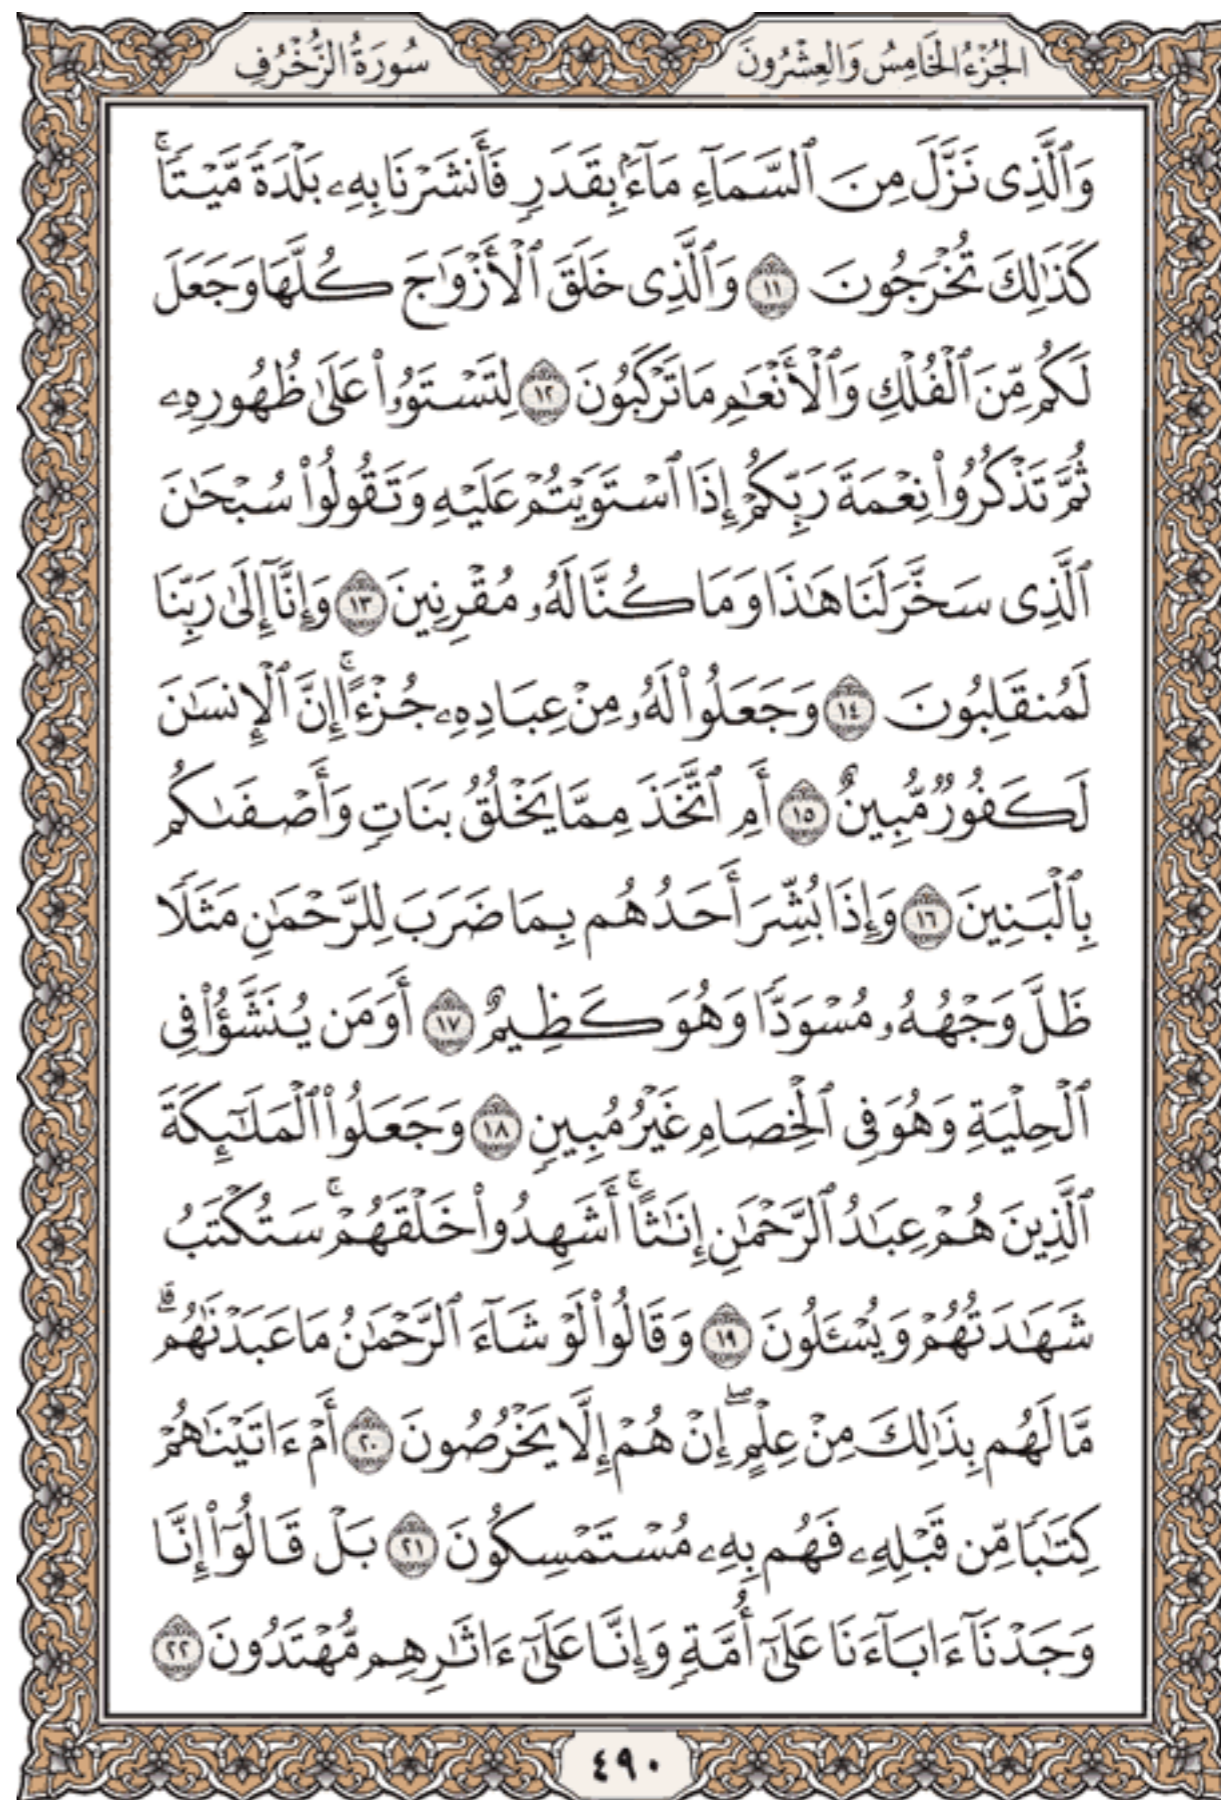 الجُزْءُ الخَامِسُ وَالعِشْرُونَ
سُورَةُ الزُّخْرُفِ
وَٱلَّذِى نَزَّلَ مِنَ ٱلسَّمَآءِ مَآءًۢ بِقَدَرٍ فَأَنشَرْنَا بِهِۦ بَلْدَةً مَّيْتًا ۚ
كَذَٰلِكَ تُخْرَجُونَ ١١ وَٱلَّذِى خَلَقَ ٱلْأَزْوَٰجَ كُلَّهَا وَجَعَلَ
لَكُم مِّنَ ٱلْفُلْكِ وَٱلْأَنْعَٰمِ مَا تَرْكَبُونَ ١٢ لِتَسْتَوُۥا۟ عَلَىٰ ظُهُورِهِۦ
ثُمَّ تَذْكُرُوا۟ نِعْمَةَ رَبِّكُمْ إِذَا ٱسْتَوَيْتُمْ عَلَيْهِ وَتَقُولُوا۟ سُبْحَٰنَ
ٱلَّذِى سَخَّرَ لَنَا هَٰذَا وَمَا كُنَّا لَهُۥ مُقْرِنِينَ ١٣ وَإِنَّآ إِلَىٰ رَبِّنَا
لَمُنقَلِبُونَ ١٤ وَجَعَلُوا۟ لَهُۥ مِنْ عِبَادِهِۦ جُزْءًا ۚ إِنَّ ٱلْإِنسَٰنَ
لَكَفُورٌ مُّبِينٌ ١٥ أَمِ ٱتَّخَذَ مِمَّا يَخْلُقُ بَنَاتٍ وَأَصْفَىٰكُم
بِٱلْبَنِينَ ١٦ وَإِذَا بُشِّرَ أَحَدُهُم بِمَا ضَرَبَ لِلرَّحْمَٰنِ مَثَلًا
ظَلَّ وَجْهُهُۥ مُسْوَدًّا وَهُوَ كَظِيمٌ ١٧ أَوَمَن يُنَشَّؤُا۟ فِى
ٱلْحِلْيَةِ وَهُوَ فِى ٱلْخِصَامِ غَيْرُ مُبِينٍ ١٨ وَجَعَلُوا۟ ٱلْمَلَٰٓئِكَةَ
ٱلَّذِينَ هُمْ عِبَٰدُ ٱلرَّحْمَٰنِ إِنَٰثًا ۚ أَشَهِدُوا۟ خَلْقَهُمْ ۚ سَتُكْتَبُ
شَهَٰدَتُهُمْ وَيُسْـَٔلُونَ ١٩ وَقَالُوا۟ لَوْ شَآءَ ٱلرَّحْمَٰنُ مَا عَبَدْنَٰهُم ۗ
مَّا لَهُم بِذَٰلِكَ مِنْ عِلْمٍ ۖ إِنْ هُمْ إِلَّا يَخْرُصُونَ ٢٠ أَمْ ءَاتَيْنَٰهُمْ
كِتَٰبًا مِّن قَبْلِهِۦ فَهُم بِهِۦ مُسْتَمْسِكُونَ ٢١ بَلْ قَالُوٓا۟ إِنَّا
وَجَدْنَآ ءَابَآءَنَا عَلَىٰٓ أُمَّةٍ وَإِنَّا عَلَىٰٓ ءَاثَٰرِهِم مُّهْتَدُونَ ٢٢
٤٩٠